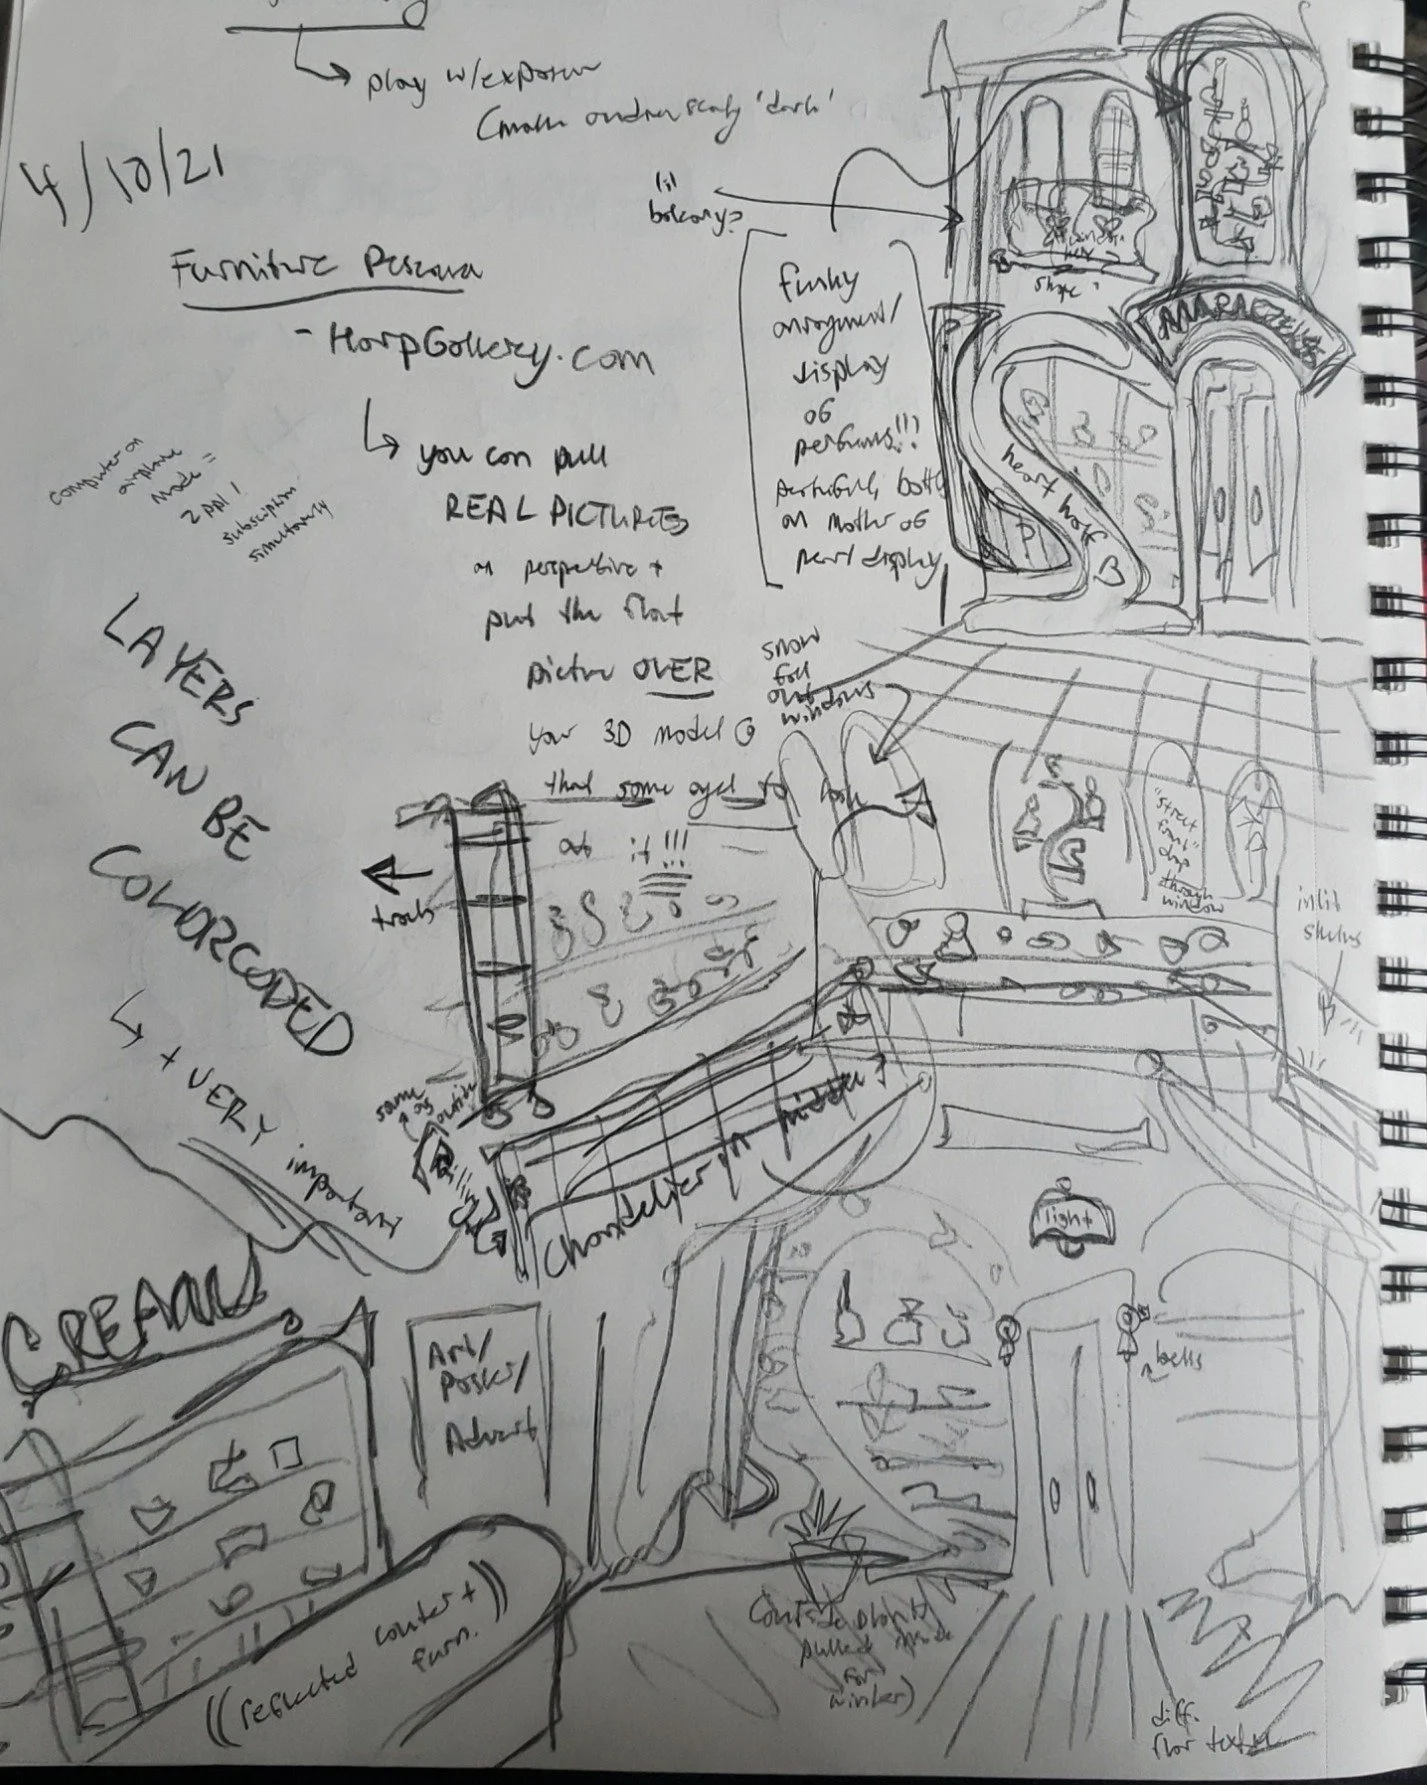 play w/exposure
'dark'
4/10/21
lil
balcony?
Furniture
- HarpGallery.com
you can pull
REAL PICTURES
in perspective +
put the flat
picture OVER
your 3D model @
that same angle to look
at it!!!
computer on
airplane
mode =
2 ppl 1
subscription
simultaneously
LAYERS
CAN BE
COLORCODED
+ VERY
important
funky
arrangement/
display
of
perfumes!!!
bottles
on mother of
pearl display
window
box?
shape?
heart half
snow
fall
out
windows
"street
light"
through
window
inlit
shelves
track
same
as
Chandelier in middle?
light
bells
CREAM
Art/
Poster/
Advert
((reflected counter +
furn.))
(outside plants
pulled inside
for
winter)
diff.
floor texture